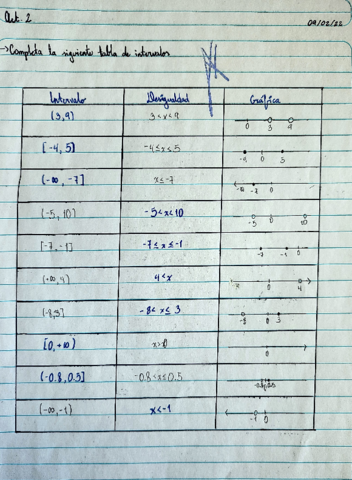 Act. 2
09/02/22
→ Completa la siguiente tabla de intervalos
Intervalo Desigualdad Gráfica
(3,9) 3<x<9 0 3 9
[-4, 5) -4≤x≤5 -4 0 5
(-∞, -7] x≤-7 -∞ -7 0
(-5, 10) -5<x<10 -5 0 10
[-7, -1] -7≤x≤-1 -7 -1 0
(+∞, 4) 4<x 0 4
(-8,3] -8<x≤3 -8 0 3
[0, +∞) x>0 0
(-0.8, 0.5] -0.8<x≤0.5
(-∞, -1) x<-1 -1 0